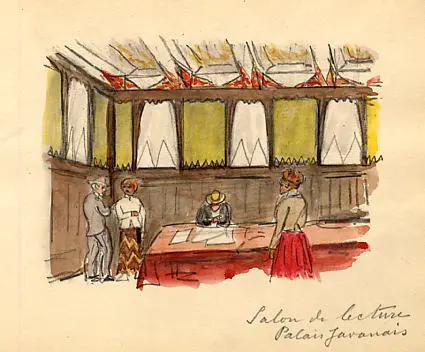 Salon de lecture
Palais Javanais